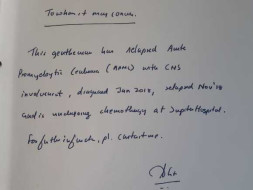 To whom it may concern.
This gentleman has relapsed Acute
Promyelocytic Leukemia (APML) with CNS
involvement, diagnosed Jan 2018, relapsed Nov'19
and is undergoing chemotherapy at Jupiter Hospital.
For further info, pl. contact me.